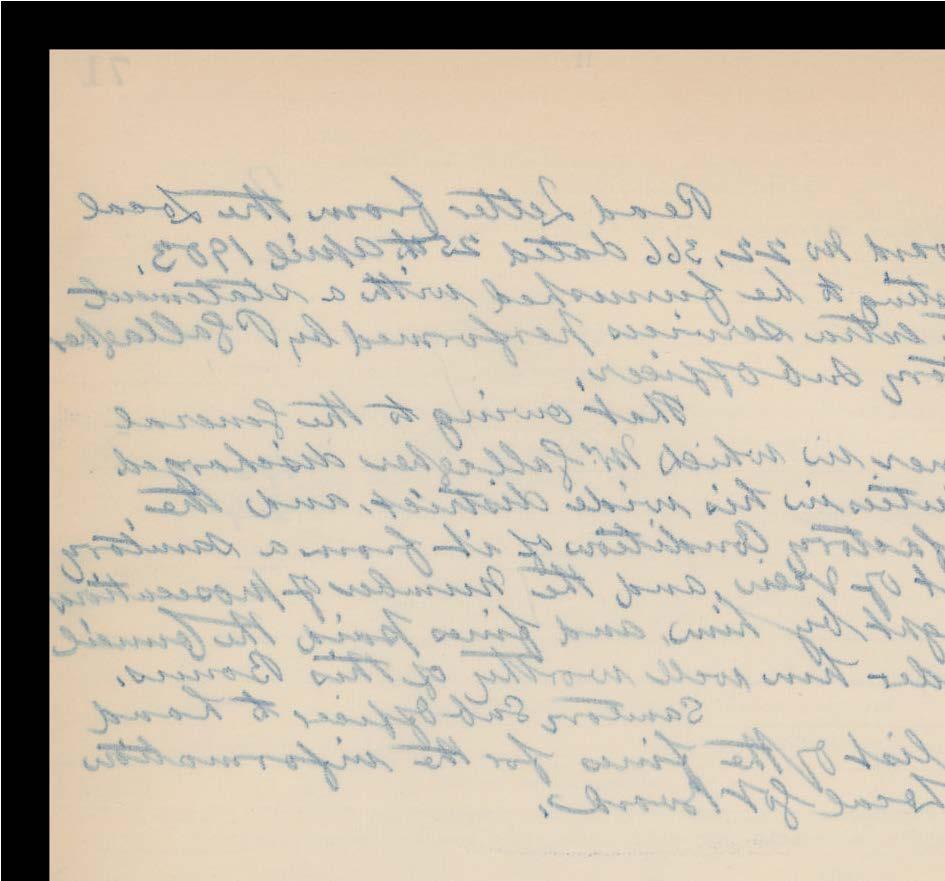 71
Read Letter from the Local
oard No 22,366 dated 25th April 1903.
ting to be furnished with a statement
extra services performed by P Gallagher
tory Sub Officer.
That owing to the General
ner in which Mr Gallagher discharged
uties in his wide district, and the
factory Condition of it from a sanitary
t of View, and the number of prosecutions
ght by him and fines paid the Council
der him well worthy of this Bonus.
Sanitary Sub Officer to hand
list of the fines for the information
Local Govt Board.